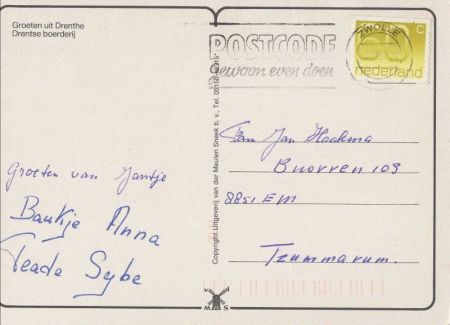 Groeten uit Drenthe
Drentse boerderij
Groeten van Jantje
Baukje Anna
Teade Sybe
Copyright Uitgeverij van der Meulen Sneek b. v., Tel.
POSTCODE
Gewoon even doen
ZWOLLE
60 c
nederland
Fam Jan Hoekma
Buorren 109
8851 EM
Tzummarum.
M A S